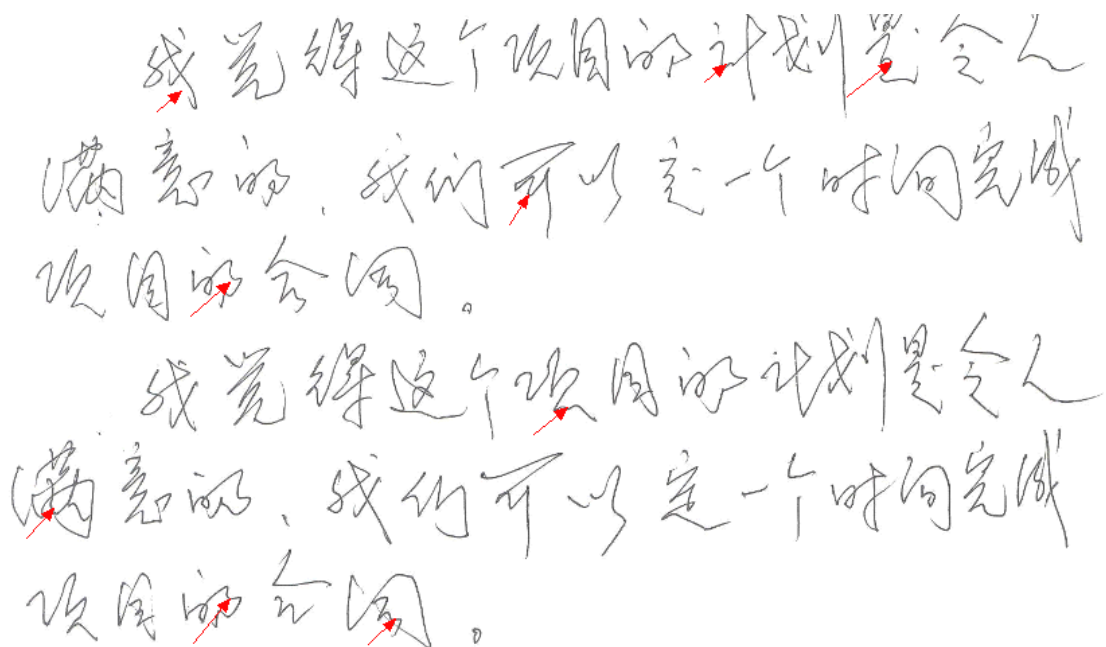 我觉得这个项目的计划是令人
满意的,我们可以定一个时间完成
项目的合同。
我觉得这个项目的计划是令人
满意的,我们可以定一个时间完成
项目的合同。